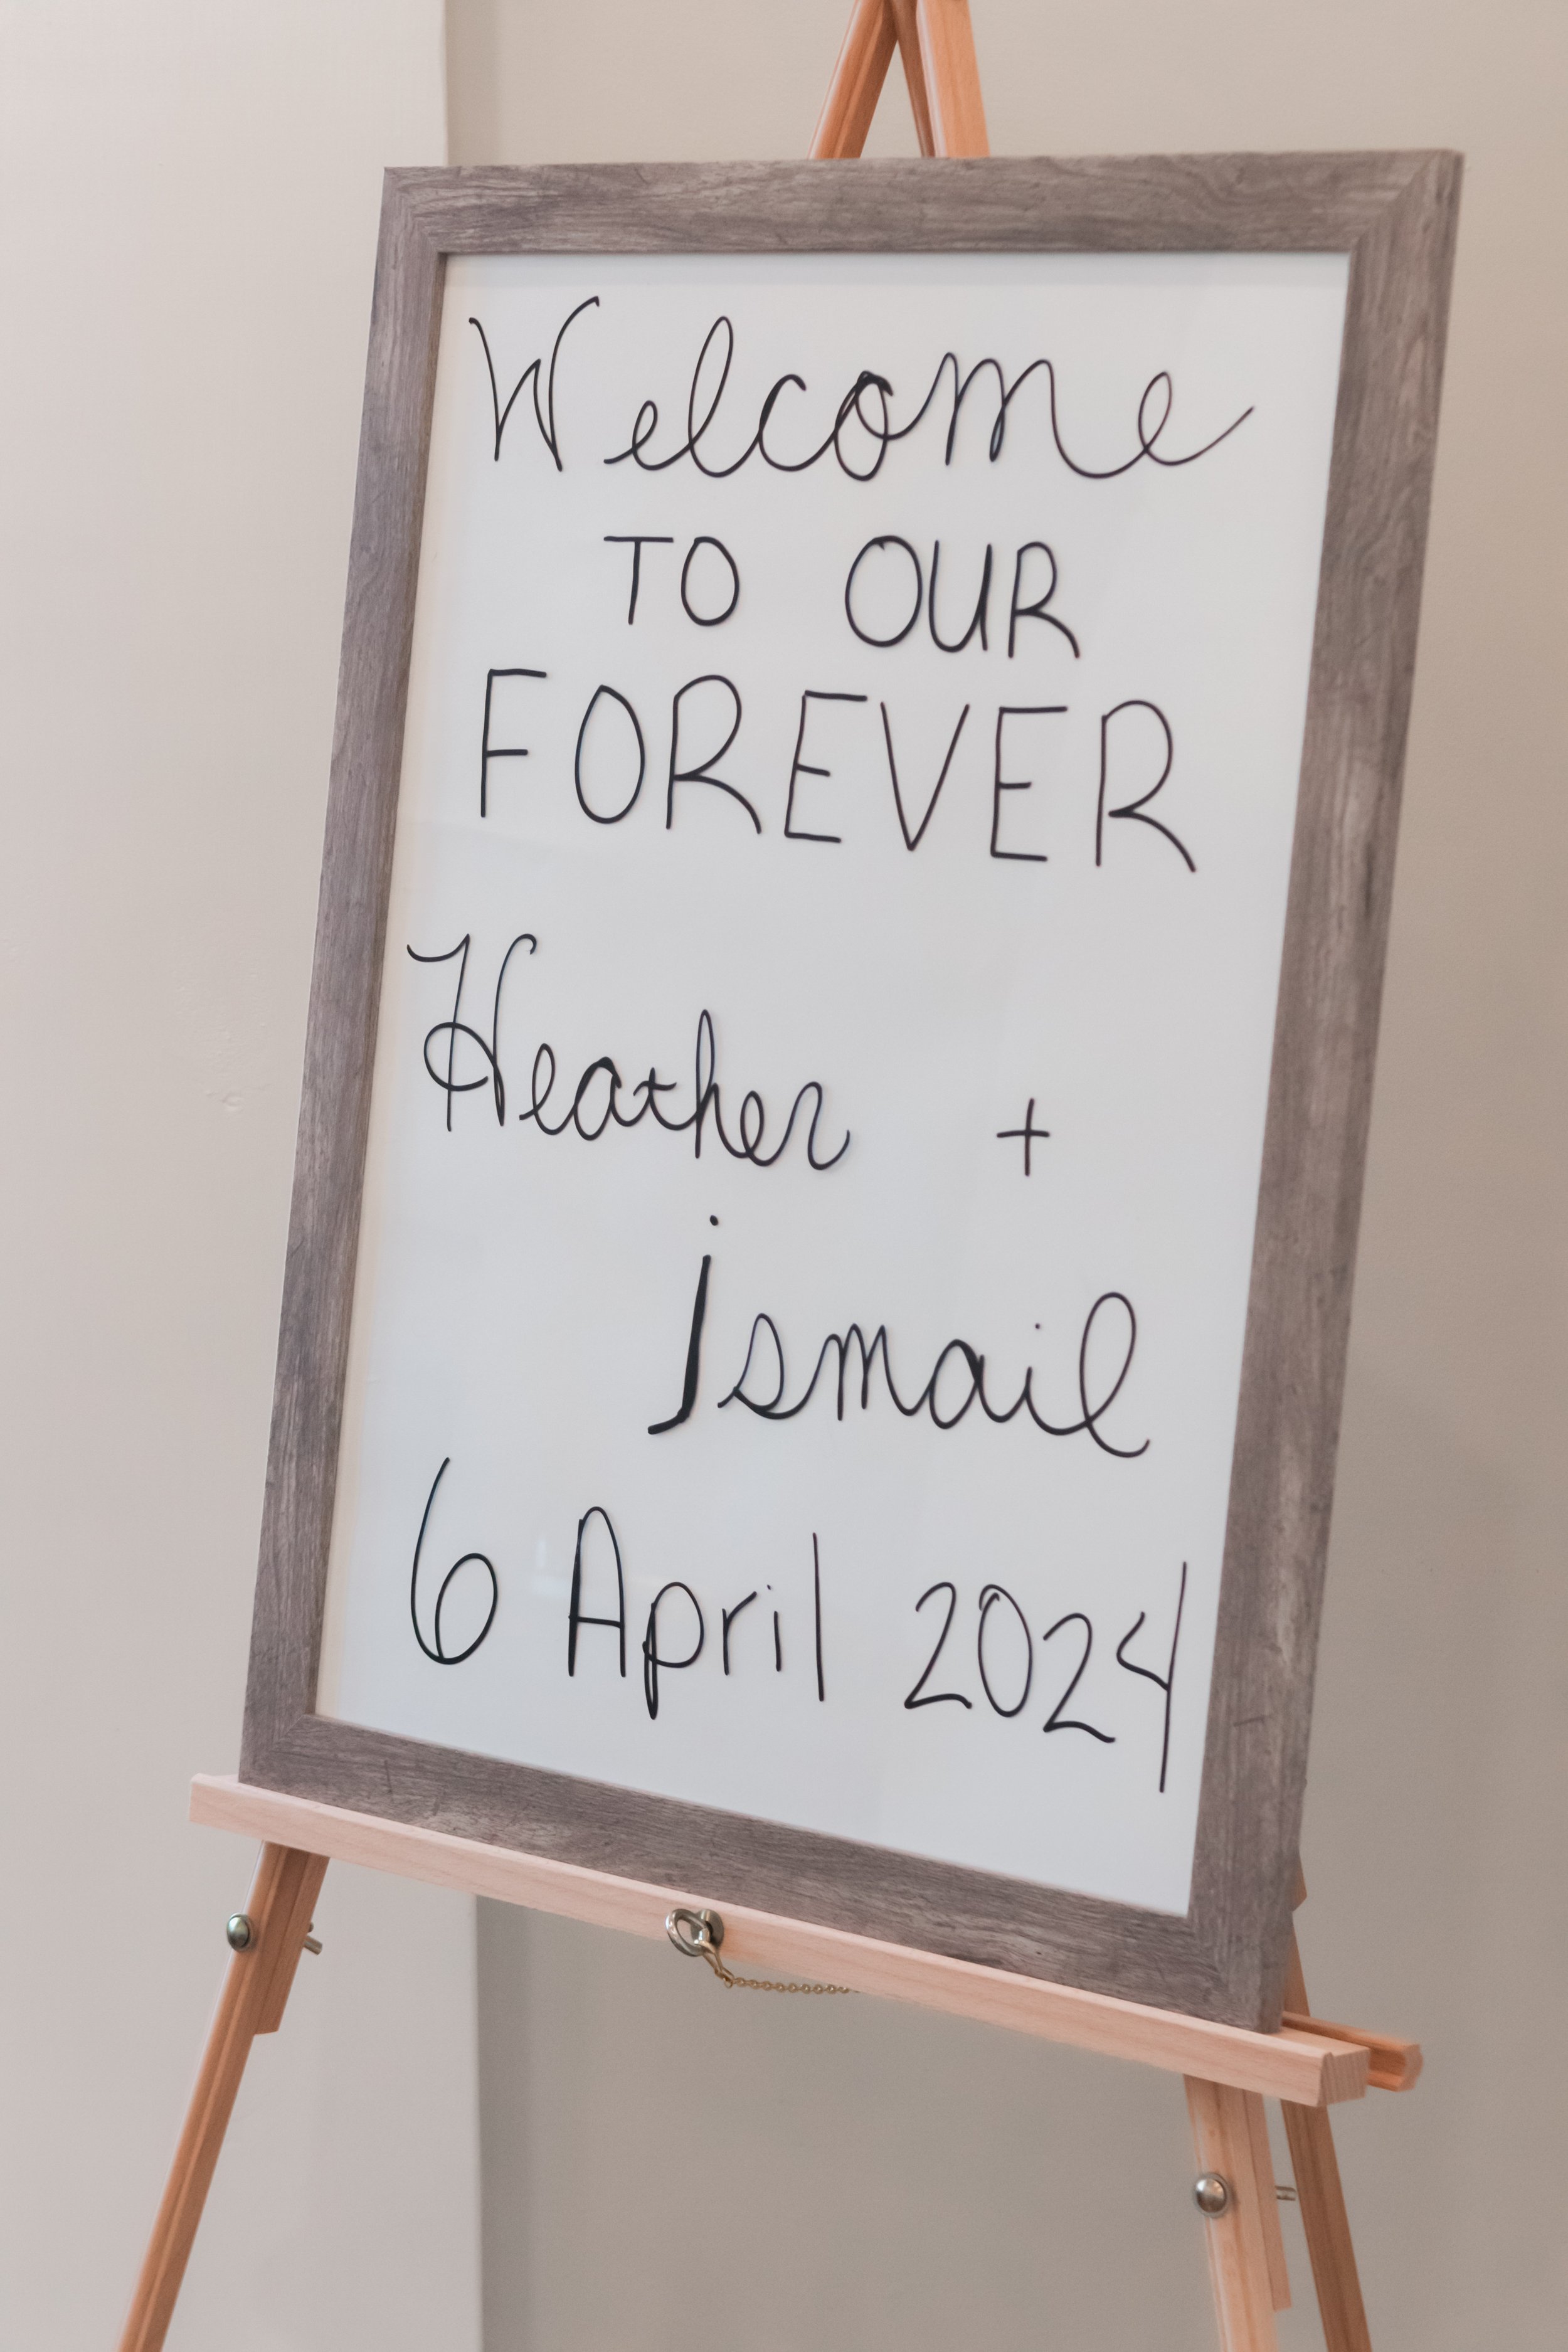 Welcome
TO OUR
FOREVER
Heather +
ismail
6 April 2024